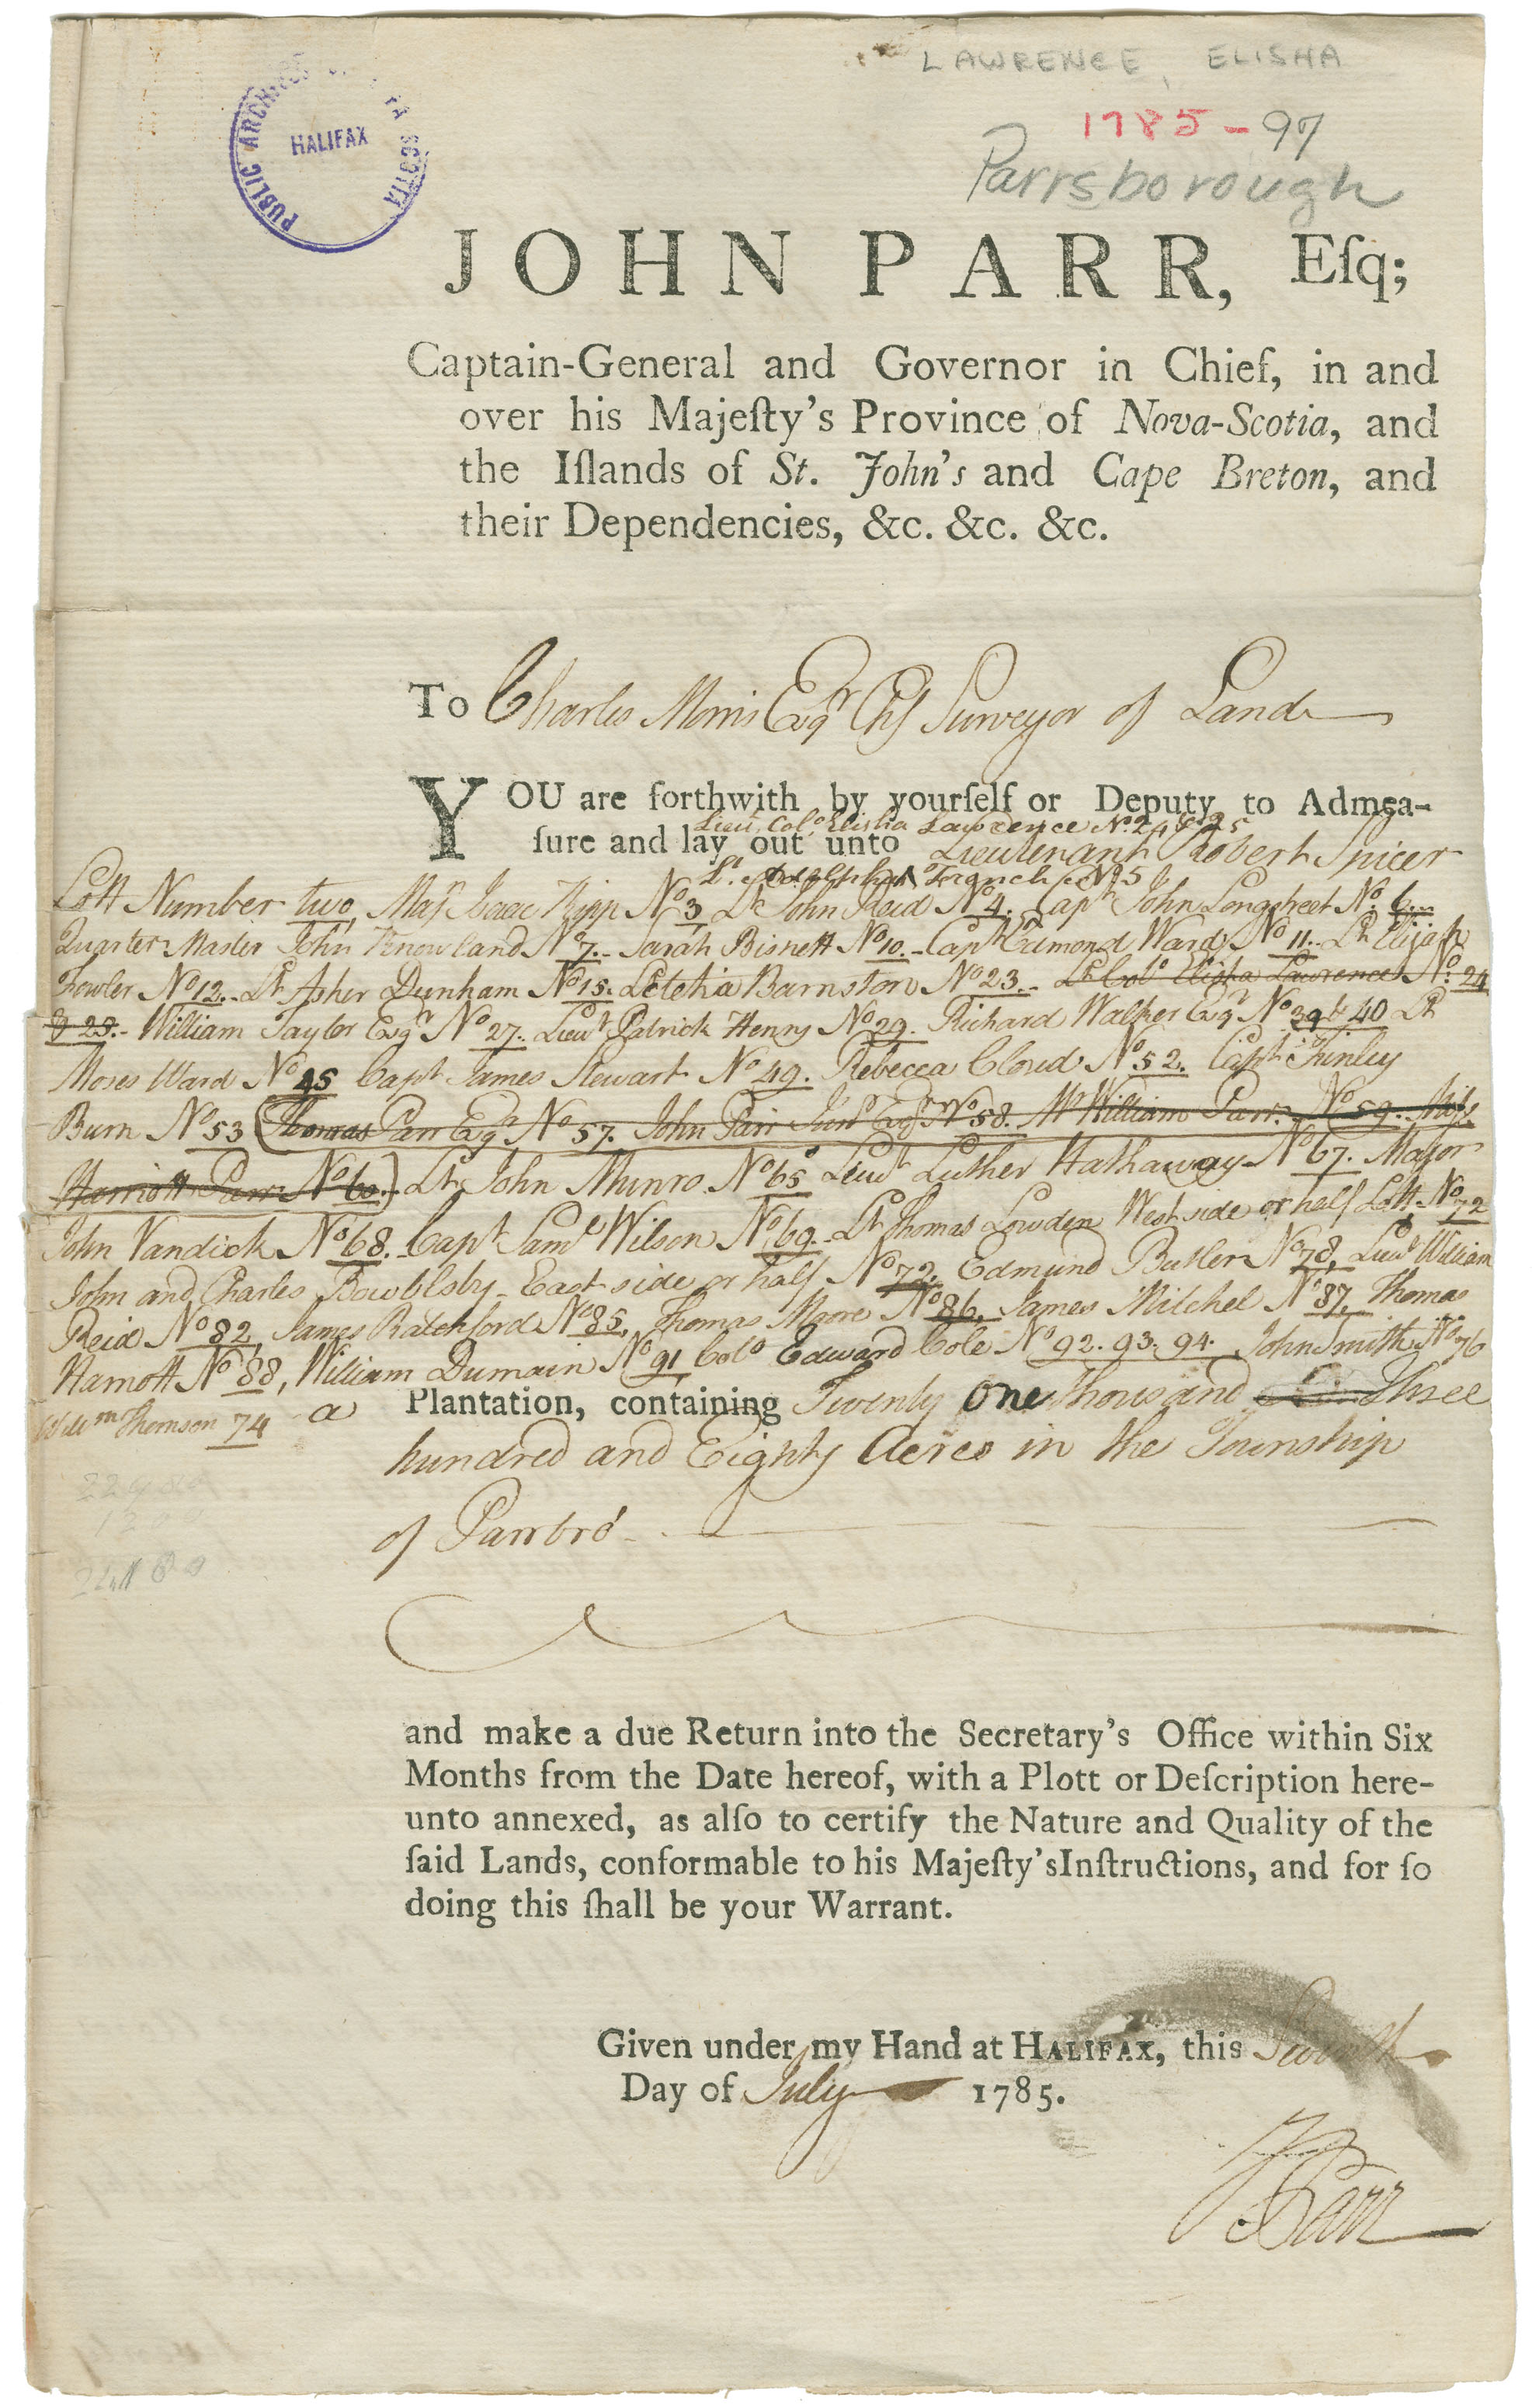 LAWRENCE, ELISHA
1785-97
Parrsborough
PUBLIC ARCHIVES SCOTIA
HALIFAX
JOHN PARR, Eſq;
Captain-General and Governor in Chief, in and
over his Majeſty's Province of Nova-Scotia, and
the Iſlands of St. John's and Cape Breton, and
their Dependencies, &c. &c. &c.
To Charles Morris Esqr Chf Surveyor of Lands
YOU are forthwith by yourſelf or Deputy to Admea-
Lieut. Colo. Elisha Lawrence No. 24 & 25
ſure and lay out unto Lieutenant Robert Spicer
Lt. French No 5
Lott Number two, Majr Isaac Kipp No 3 Lt John Reid No 4. Capt John Longstreet No. 6
Quarter Master John Knowland No 7. Sarah Bisnett No 10. Capt Edmond Ward No 11. Lt Elijah
Fowler No 12. Lt Asher Dunham No 15. Letetia Barnston No 23. Lt Colo Elisha Lawrence No. 24
& 25. William Taylor Esqr No 27. Lieut Patrick Henry No 29. Richard Walker Esqr No 39 & 40 Lt
Moses Ward No 45 Capt James Stewart No 49. Rebecca Cloud No 52. Capt Thinley
Burn No 53 (Thomas Parr Esqr No 57. John Parr Junr Esqr No 58. Mr William Parr. No 59. Miss
Harriott Parr No 60.) Lt John Munro No 65 Lieut Luther Hathaway No 67. Major
John Vandick No 68. Capt Saml Wilson No 69. Lt Thomas Lowden West side or half Lott No 72
John and Charles Bowlsby East side or half No 72. Edmund Butler No 78, Lieut William
Reid No 82, James Ratchford No 85, Thomas Moore No 86, James Mitchel No 87, Thomas
Hamott No 88, William Dumain No 91 Colo Edward Cole No 92. 93. 94. John Smith No 76
Willm Thomson 74 a Plantation, containing Twenty One Thousand Three
hundred and Eighty Acres in the Township
of Parrbro'
and make a due Return into the Secretary's Office within Six
Months from the Date hereof, with a Plott or Deſcription here-
unto annexed, as alſo to certify the Nature and Quality of the
ſaid Lands, conformable to his Majeſty'sInſtructions, and for ſo
doing this ſhall be your Warrant.
Given under my Hand at HALIFAX, this
Day of July 1785.
J Parr